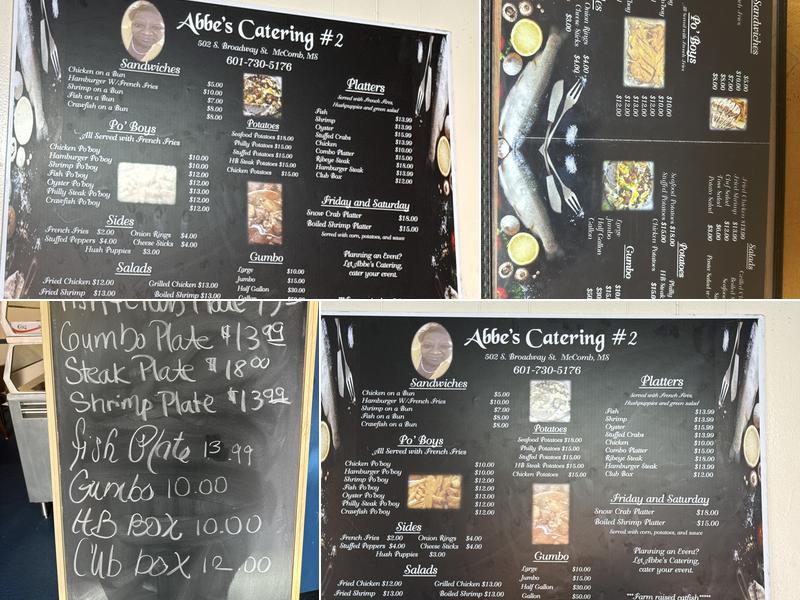 Abbe's Catering #2
502 S. Broadway St. McComb, MS
601-730-5176
Sandwiches
Chicken on a Bun $5.00
Hamburger W/French Fries $10.00
Shrimp on a Bun $7.00
Fish on a Bun $8.00
Crawfish on a Bun $8.00
Po' Boys
All Served with French Fries
Chicken Po'boy $10.00
Hamburger Po'boy $10.00
Shrimp Po'boy $12.00
Fish Po'boy $12.00
Oyster Po'boy $13.00
Philly Steak Po'boy $12.00
Crawfish Po'boy $12.00
Sides
French Fries $2.00 Onion Rings $4.00
Stuffed Peppers $4.00 Cheese Sticks $4.00
Hush Puppies $3.00
Salads
Fried Chicken $12.00 Grilled Chicken $13.00
Fried Shrimp $13.00 Boiled Shrimp $13.00
Potatoes
Seafood Potatoes $18.00
Philly Potatoes $15.00
Stuffed Potatoes $15.00
HB Steak Potatoes $15.00
Chicken Potatoes $15.00
Gumbo
Large $10.00
Jumbo $15.00
Half Gallon $30.00
Platters
Served with French Fries,
Hushpuppies and green salad
Fish $13.99
Shrimp $13.99
Oyster $15.99
Stuffed Crabs $13.99
Chicken $10.00
Combo Platter $15.00
Ribeye Steak $18.00
Hamburger Steak $13.99
Club Box $12.00
Friday and Saturday
Snow Crab Platter $18.00
Boiled Shrimp Platter $15.00
Served with corn, potatoes, and sauce
Planning an Event?
Let Abbe's Catering,
cater your event.
Sandwiches
$5.00
$10.00
$7.00
$8.00
$8.00
Po' Boys
All Served with French Fries
$10.00
$10.00
$12.00
$12.00
$12.00
$12.00
Onion Rings $4.00
Cheese Sticks $4.00
$3.00
Salads
Fried Chicken
Fried Shrimp $13.00
Chef Salad $12.00
Tuna Salad $6.00
Potato Salad $3.00
Potatoes
Seafood Potatoes $18.00
Stuffed Potatoes $15.00
Chicken Potatoes
Philly
HB Steak
Gumbo
Large
Jumbo
Half Gallon
Gallon
Gumbo Plate $13.99
Steak Plate $18.00
Shrimp Plate $13.99
fish Plate 13.99
Gumbo 10.00
HB BOX 10.00
Club box 12.00
Abbe's Catering #2
502 S. Broadway St. McComb, MS
601-730-5176
Sandwiches
Chicken on a Bun $5.00
Hamburger W/French Fries $10.00
Shrimp on a Bun $7.00
Fish on a Bun $8.00
Crawfish on a Bun $8.00
Po' Boys
All Served with French Fries
Chicken Po'boy $10.00
Hamburger Po'boy $10.00
Shrimp Po'boy $12.00
Fish Po'boy $12.00
Oyster Po'boy $13.00
Philly Steak Po'boy $12.00
Crawfish Po'boy $12.00
Sides
French Fries $2.00 Onion Rings $4.00
Stuffed Peppers $4.00 Cheese Sticks $4.00
Hush Puppies $3.00
Salads
Fried Chicken $12.00 Grilled Chicken $13.00
Fried Shrimp $13.00 Boiled Shrimp $13.00
Potatoes
Seafood Potatoes $18.00
Philly Potatoes $15.00
Stuffed Potatoes $15.00
HB Steak Potatoes $15.00
Chicken Potatoes $15.00
Gumbo
Large $10.00
Jumbo $15.00
Half Gallon $30.00
Gallon $50.00
Platters
Served with French Fries,
Hushpuppies and green salad
Fish $13.99
Shrimp $13.99
Oyster $15.99
Stuffed Crabs $13.99
Chicken $10.00
Combo Platter $15.00
Ribeye Steak $18.00
Hamburger Steak $13.99
Club Box $12.00
Friday and Saturday
Snow Crab Platter $18.00
Boiled Shrimp Platter $15.00
Served with corn, potatoes, and sauce
Planning an Event?
Let Abbe's Catering,
cater your event.
***Farm raised catfish*****